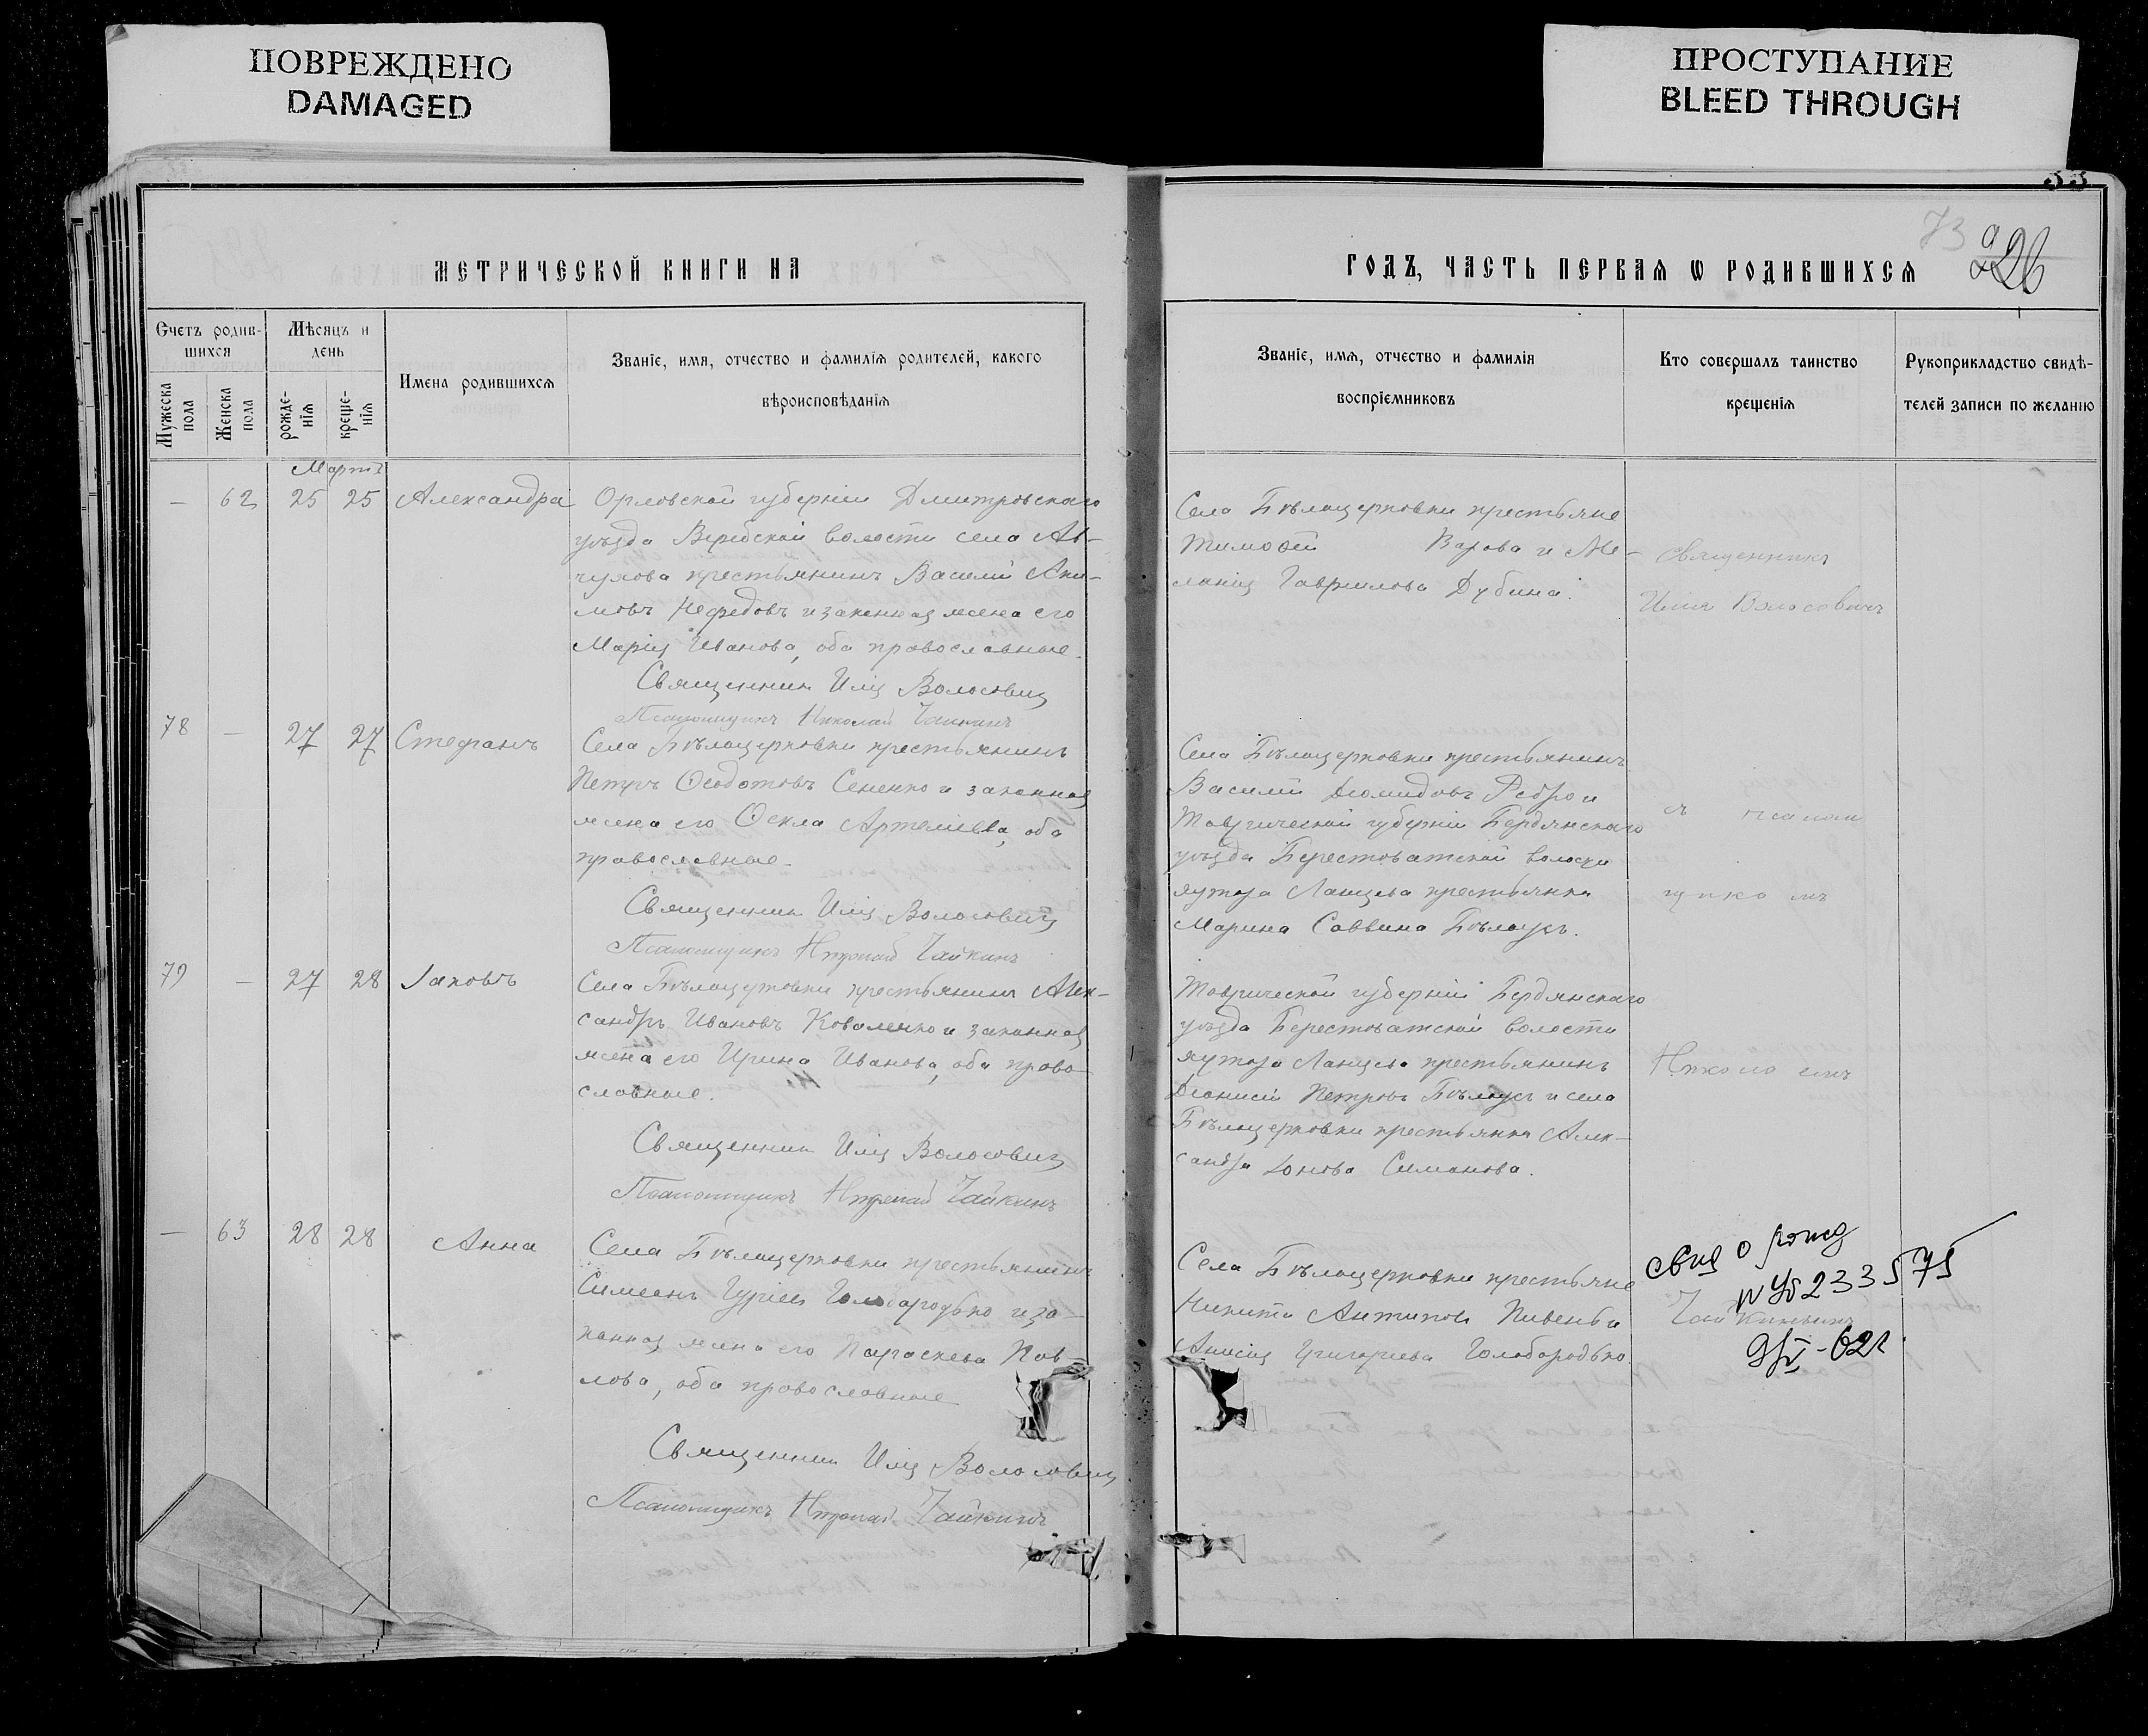 ПОВРЕЖДЕНО
DAMAGED
ПРОСТУПАНИЕ
BLEED THROUGH
33
73
226
МЕТРИЧЕСКОЙ КНИГИ НА
ГОДЪ, ЧАСТЬ ПЕРВАЯ Ѡ РОДИВШИХСЯ
Счетъ родив-
шихся
Мужеска пола
Женска пола
Мѣсяцъ и
день
рожде-
нія
креще-
нія
Имена родившихся
Званіе, имя, отчество и фамилія родителей, какого
вѣроисповѣданія
Званіе, имя, отчество и фамилія
воспріемниковъ
Кто совершалъ таинство
крещенія
Рукоприкладство свидѣ-
телей записи по желанію
Мартъ
— 62 25 25 Александра
Орловской губерніи Дмитровскаго
уѣзда Веребской волости села Ав-
чухова крестьянинъ Василій Аки-
мовъ Нефедовъ и законная жена его
Марія Иванова, оба православные.
Священник Илія Волосович
Псаломщикъ Николай Чайкинъ
Села Бѣлоцерковки крестьяне
Тимофей и Ме-
ланія Гаврилова Дубина.
Священникъ
Илія Волосовичъ
78 — 27 27 Стефанъ
Села Бѣлоцерковки крестьянинъ
Петръ Ѳеодотовъ Сененко и законная
жена его Ѳекла Артемієва, оба
православные.
Священник Илія Волосович
Псаломщикъ Николай Чайкинъ
Села Бѣлоцерковки крестьянинъ
Василій Діомидовъ Ребро и
Таврической губерніи Бердянскаго
уѣзда Берестоватской волости
хутора Ланцева крестьянка
Марина Саввина Бѣлоусъ.
съ псалом
щико мъ
79 — 27 28 Іаковъ
Села Бѣлоцерковки крестьянинъ Алек-
сандръ Ивановъ Коваленко и законная
жена его Ирина Иванова, оба право-
славные.
Священник Илія Волосович
Псаломщикъ Николай Чайкинъ
Таврической губерніи Бердянскаго
уѣзда Берестоватской волости
хутора Ланцева крестьянинъ
Діонисій Петровъ Бѣлоусъ и села
Бѣлоцерковки крестьянка Алек-
сандра Іонова Симанова.
Николаемъ
— 63 28 28 Анна
Села Бѣлоцерковки крестьянинъ
Симеонъ Гуріевъ Голобородько и за-
конная жена его Параскева Пав-
лова, оба православные
Священник Илія Волосович
Псаломщикъ Николай Чайкинъ
Села Бѣлоцерковки крестьяне
Никита Антиповъ Пивень и
Анисія Григорьева Голобородько.
Чайкинымъ
свид о рожд
233575